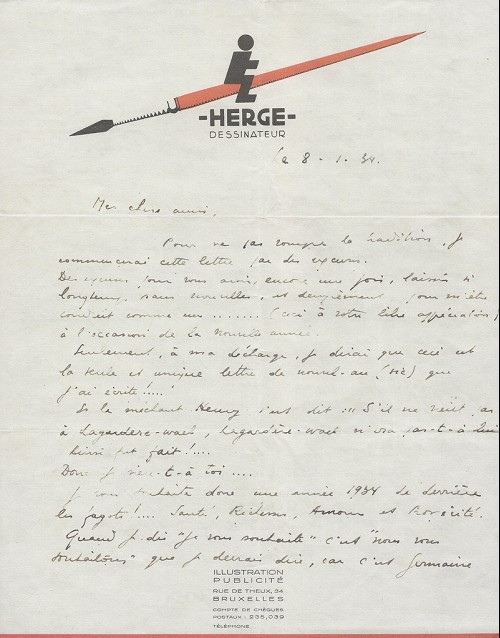 -HERGE-
DESSINATEUR
le 8 - 1. 34.
Mes chers amis,
Pour ne pas rompre la tradition, je
commencerai cette lettre par des excuses.
Des excuses pour vous avoir, encore une fois, laissés si
longtemps sans nouvelles, et deuxièmement pour m'être
conduit comme un ........ (ceci à votre libre appréciation)
à l'occasion de la nouvelle année.
Seulement, à ma décharge, je dirai que ceci est
la seule et unique lettre de nouvel-an (sic) que
j'ai écrite!....!
Si le méchant s'est dit ::: S'il ne vient pas
à Lagardère-wach, Lagardère-wach n'ira pas-t-à lui
Ainsi fut fait!....
Donc je viens-t-à toi....
Je vous souhaite donc une année 1934 de derrière
les fagots!.... Santé, Richesses, Amour et Prospérité.
Quand je dis "Je vous souhaite" c'est "nous vous
souhaitons" que je devrais dire, car c'est Germaine
ILLUSTRATION
PUBLICITÉ
RUE DE THEUX, 34
BRUXELLES
COMPTE DE CHÈQUES
POSTAUX : 235,039
TÉLÉPHONE